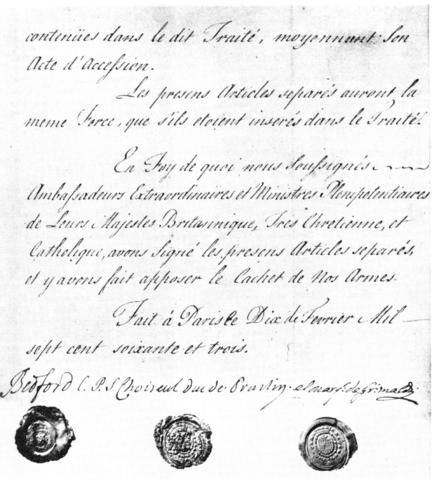 contenües dans le dit Traité, moyennant Son
Acte d'Accession.
Les presens Articles separés auront la
meme Force, que s'ils etoient inserés dans le Traité.
En Foy de quoi nous Soussignés
Ambassadeurs Extraordinaires et Ministres Plenipotentiaires
de Leurs Majestes Britannique, Très Chretienne, et
Catholique, avons signé les presens Articles separés,
et y avons fait apposer le Cachet de Nos Armes.
Fait à Paris le Dix de Fevrier Mil
sept cent soixante et trois.
Bedford C.P.S. Choiseul Duc de Praslin. el Marq. de Grimaldi